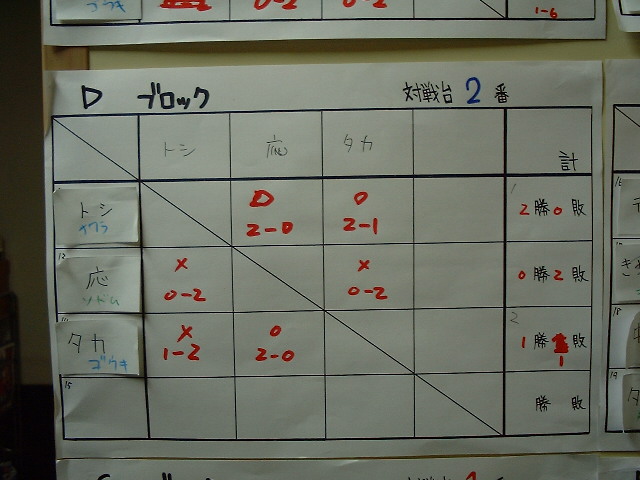 ゴウキ 0-2 0-2 1-6
D ブロック 対戦台 2 番
トシ 応 タカ 計
トシ O O 2勝0敗
サクラ 2-0 2-1
12 応 × × 0勝2敗
ソドム 0-2 0-2
タカ × O 2 1勝1敗
ゴウキ 1-2 2-0
15 勝 敗